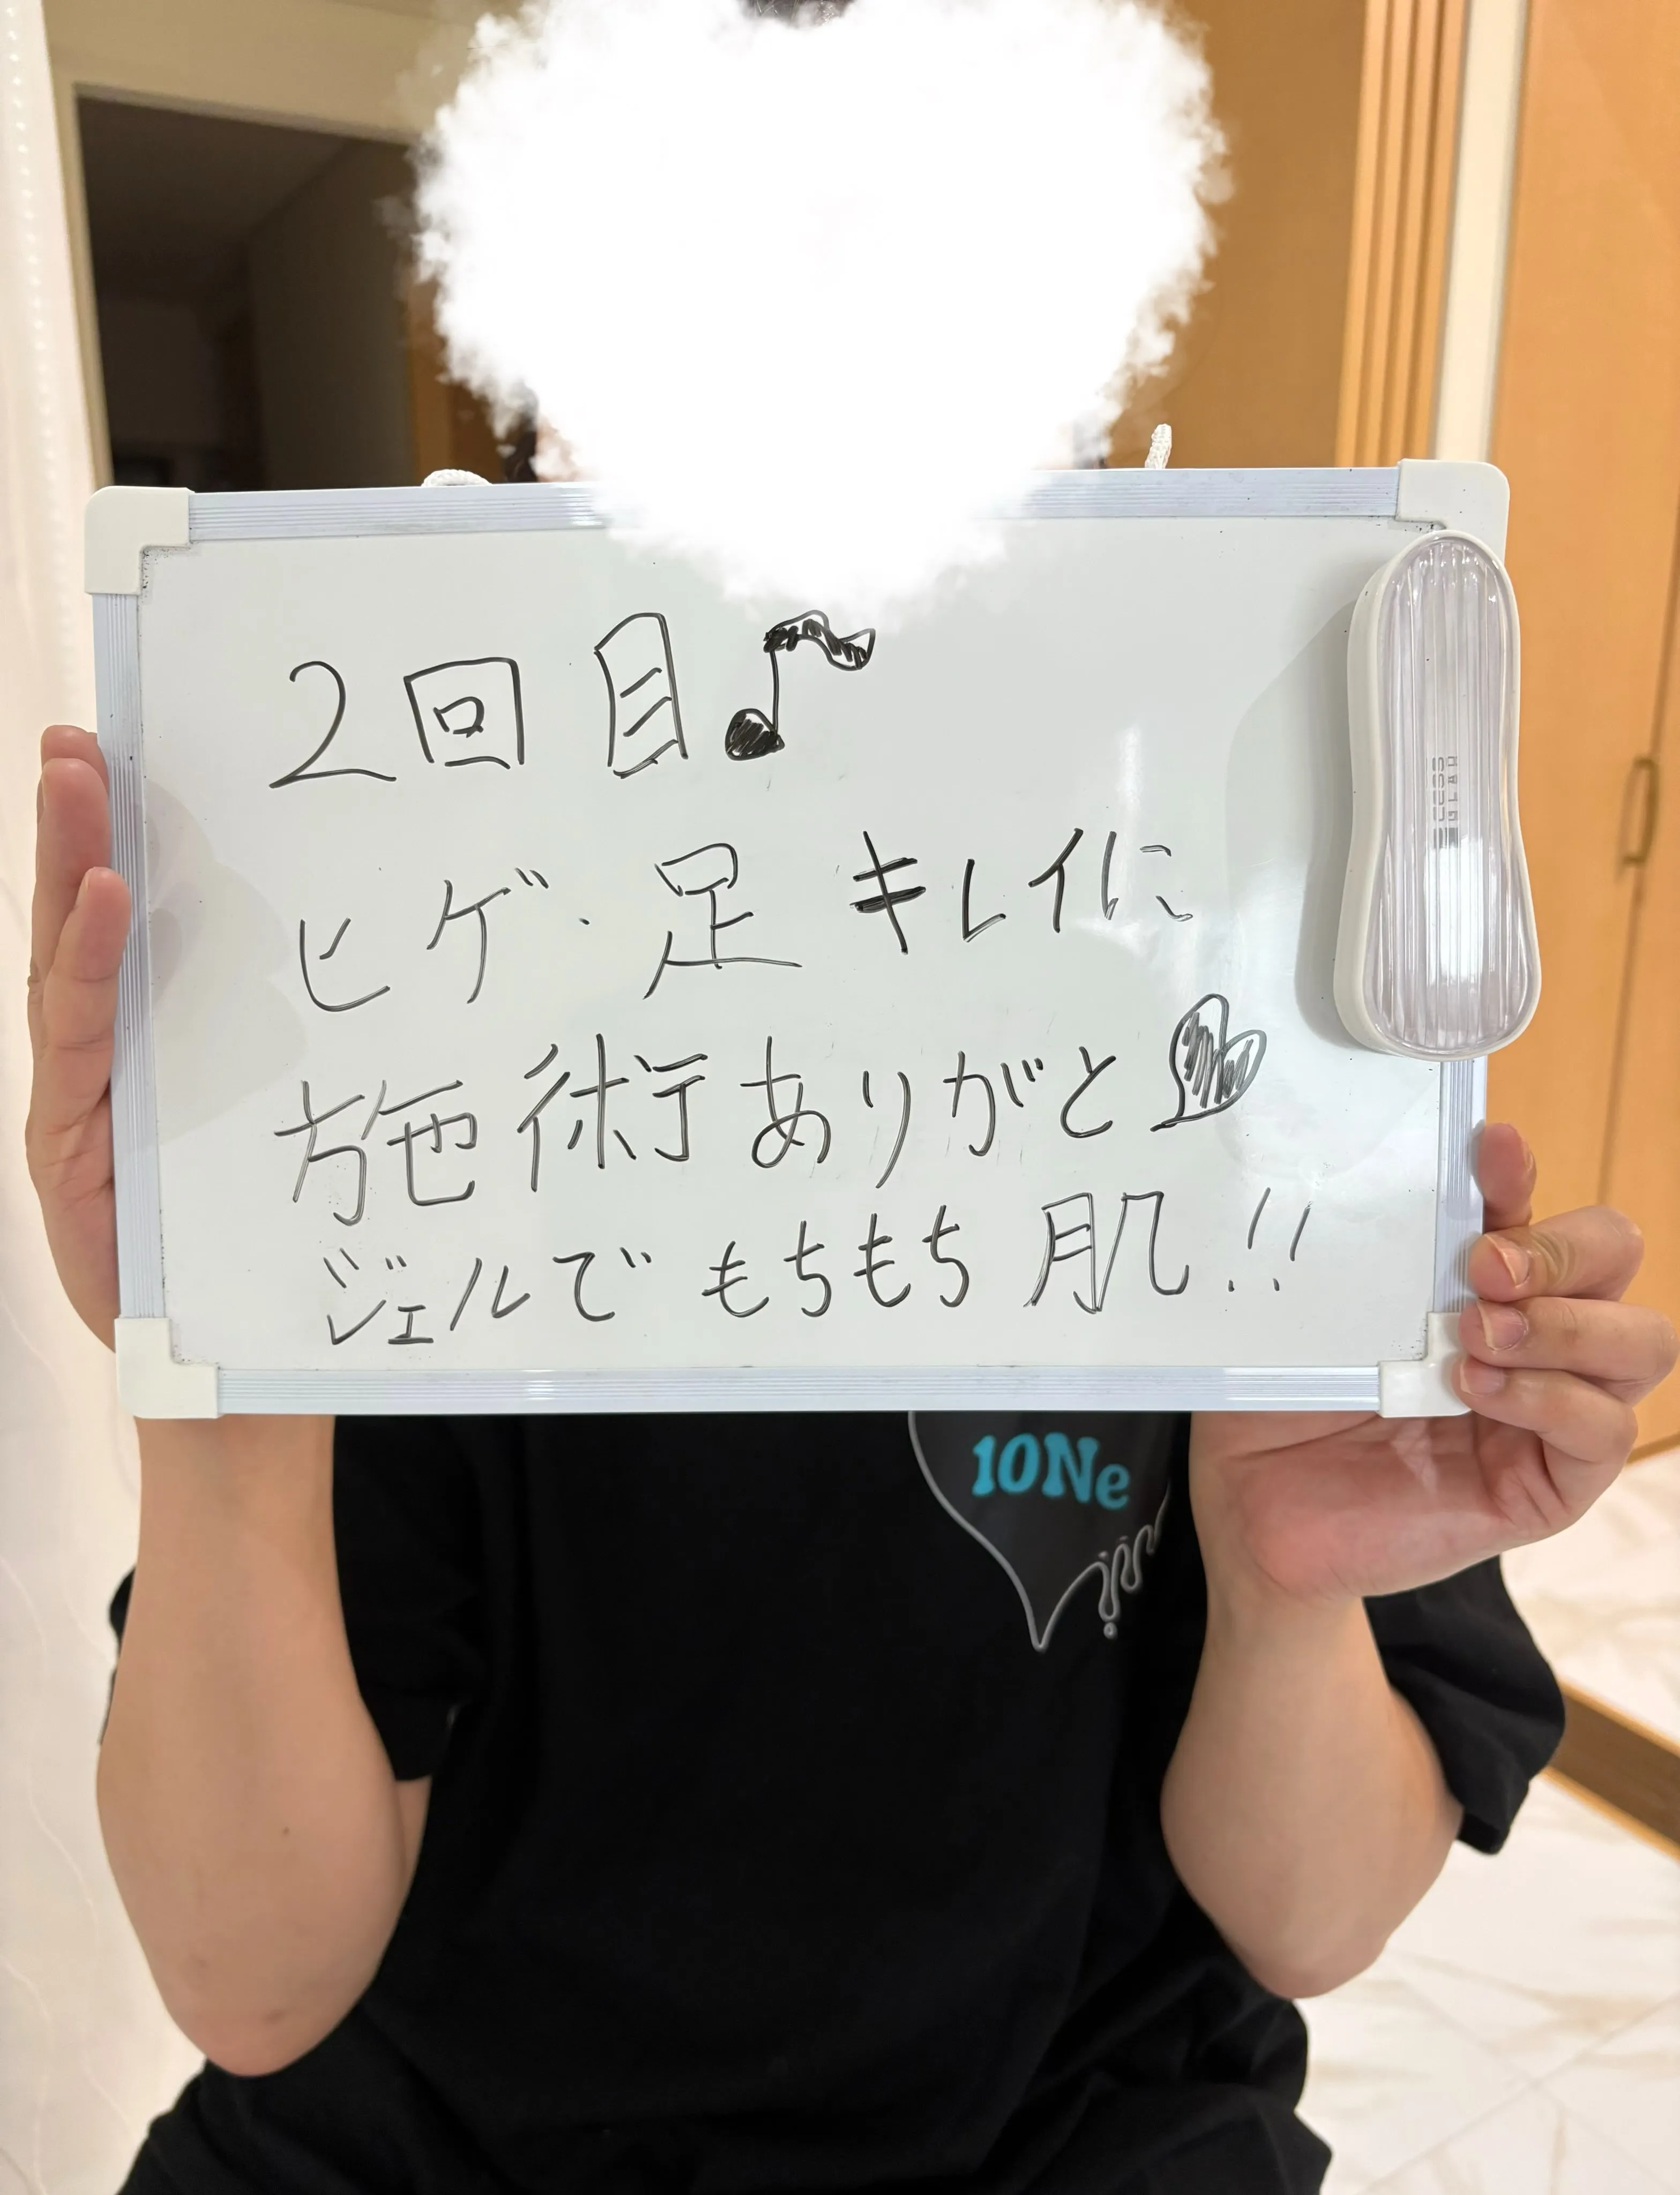 2回目♪
ヒゲ・足 キレイに
施術ありがと♥
ジェルでもちもち肌!!
10Ne